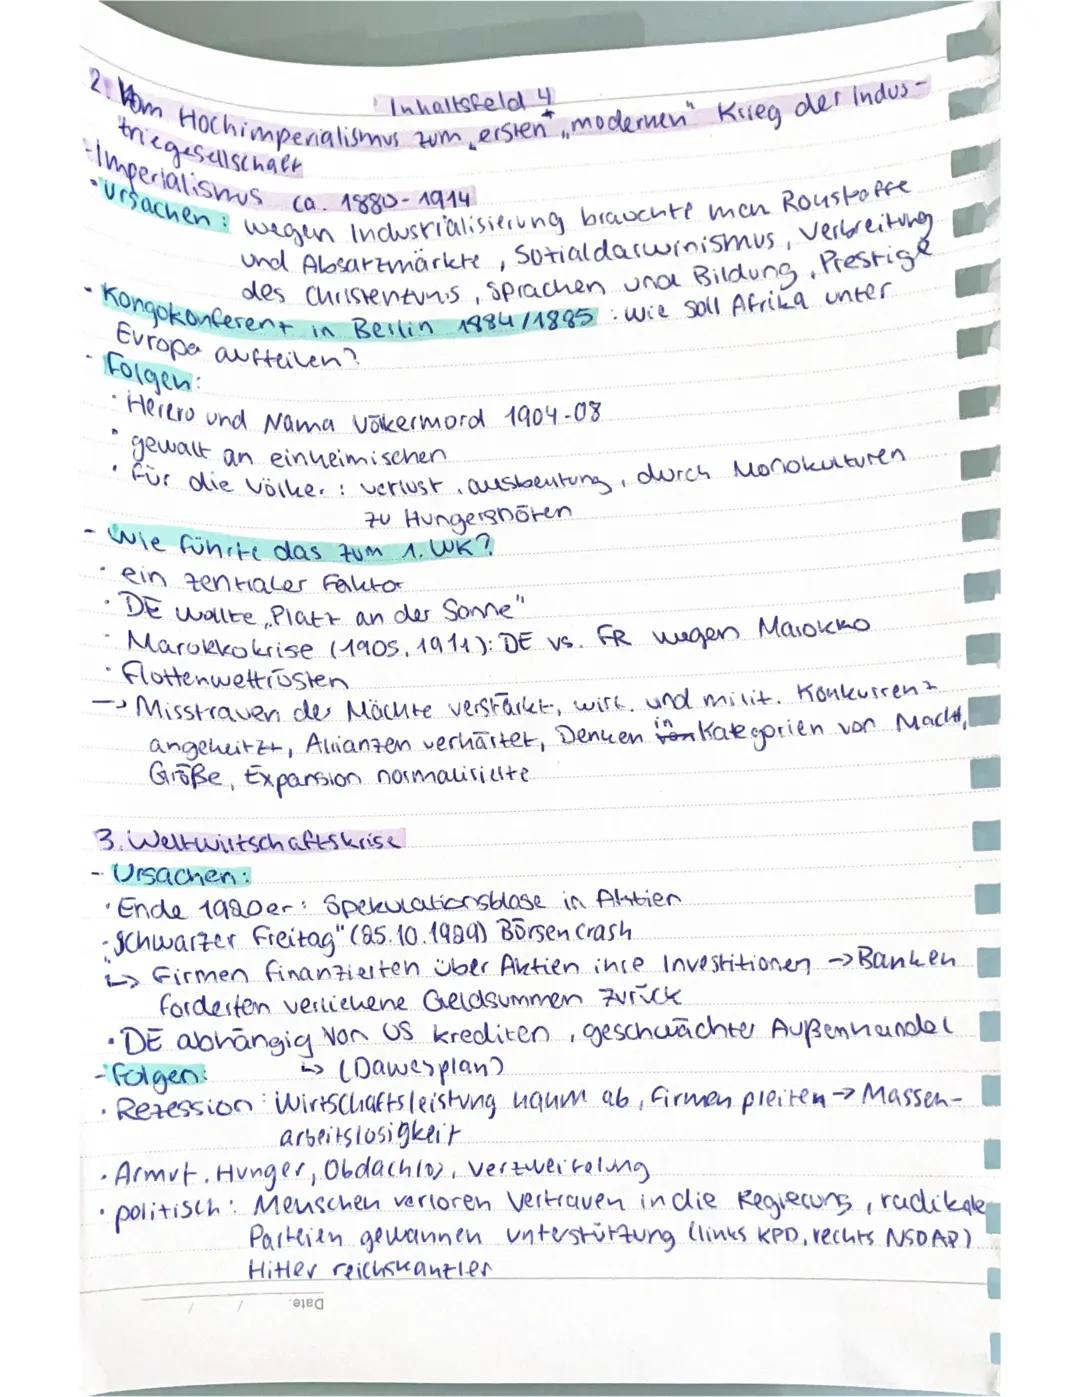 Inhaltsfeld 4
2. Vom Hochimperialismus zum ersten "modernen" Krieg der Indus-
triegesellschaft
- Imperialismus ca. 1880-1914
• Ursachen: wegen Industrialisierung brauchte man Rohstoffe
und Absatzmärkte, Sozialdarwinismus, Verbreitung
des Christentums, Sprachen und Bildung, Prestige
- Kongokonferenz in Berlin 1884/1885: Wie soll Afrika unter
Europa aufteilen?
- Folgen:
• Herero und Nama Völkermord 1904-08
• gewalt an einheimischen
• für die Völker: verlust, ausbeutung, durch Monokulturen
zu Hungersnöten
- Wie führte das zum 1. WK?
• ein zentraler Faktor
• DE wollte „Platz an der Sonne"
• Marokkokrise (1905, 1911): DE vs. FR wegen Marokko
• Flottenwettrüsten
→ Misstrauen der Mächte verstärkt, wirt. und milit. Konkurrenz
angeheitzt, Allianzen verhärtet, Denken in Kategorien von Macht,
Größe, Expansion normalisierte
3. Weltwirtschaftskrise
- Ursachen:
• Ende 1920er: Spekulationsblase in Aktien
• „Schwarzer Freitag" (25.10.1929) Börsencrash
↳ Firmen finanzierten über Aktien ihre Investitionen → Banken
forderten verliehene Geldsummen zurück
• DE abhängig von US krediten, geschwächter Außenhandel
↳ (Dawesplan)
- Folgen:
• Rezession: Wirtschaftsleistung nahm ab, Firmen pleiten → Massen-
arbeitslosigkeit
• Armut, Hunger, Obdachlos, Verzweifelung
• politisch: Menschen verloren Vertrauen in die Regierung, radikale
Parteien gewannen unterstützung (links KPD, rechts NSDAP)
Hitler reichskanzler
Date: / /